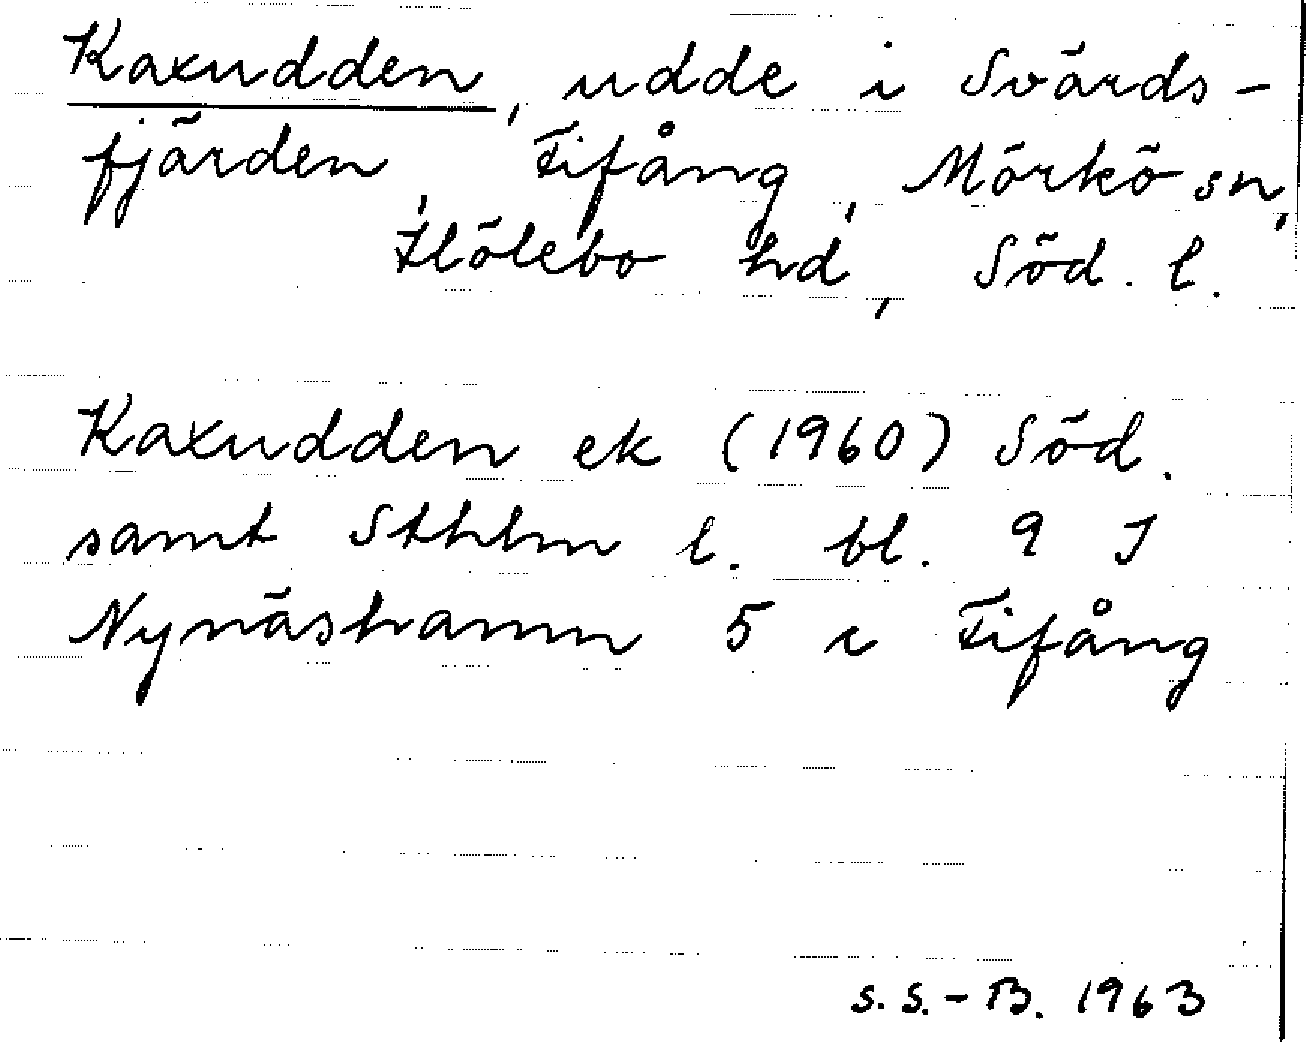 Kaxudden, udde i Svärds-
fjärden, Fifång, Mörkö sn,
Hölebo hd, Söd. l.
Kaxudden ek (1960) Söd.
samt Sthlm l. bl. 9 I
Nynäshamn 5 i Fifång
S. S.-B. 1963